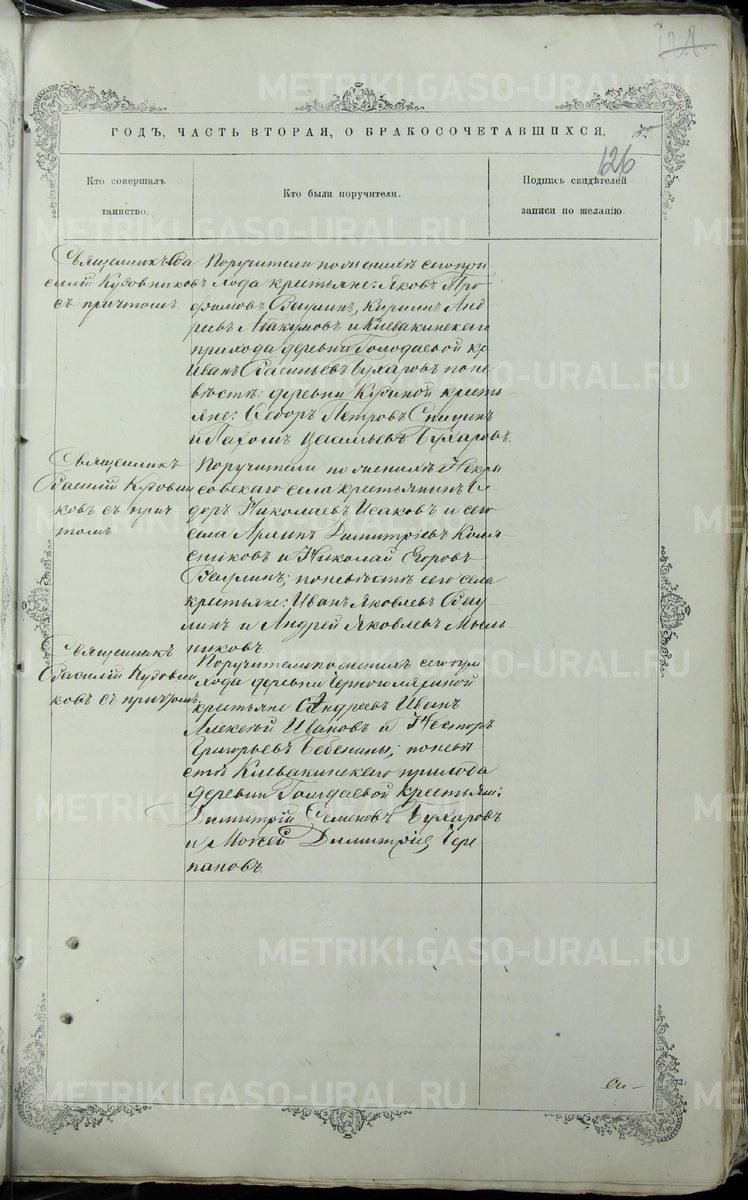 ГОДЪ, ЧАСТЬ ВТОРАЯ, О БРАКОСОЧЕТАВШИХСЯ.
126
Кто совершалъ
таинство.
Кто были поручители.
Подпись свидѣтелей
записи по желанію.
Священникъ Ва
силій Кудовниковъ
съ причтомъ.
Поручители по женихѣ сего при
хода крестьяне: Яковъ Тро
фимовъ Ваулинъ, Кирилъ Анд
реевъ Абакумовъ и Клевакинскаго
прихода деревни Голодаевой кр
Иванъ Васильевъ Бухаровъ по не
вѣстѣ: деревни крестья
яне: Ѳедоръ Петровъ
и Пахомъ Васильевъ Бухаровъ.
Священникъ
Василій Кудовни
ковъ съ при
томъ
Поручители по женихѣ Некра
совскаго села крестьянинъ Ѳе
доръ Николаевъ Исаковъ и сего
села Димитріевъ Коля
сниковъ и Николай Егоровъ
Ваулинъ; по невѣстѣ сего села
крестьяне: Иванъ Яковлевъ Вау
линъ и Андрей Яковлевъ Мыль
никовъ.
Священникъ
Василій Кудовни
ковъ съ причтомъ
Поручители по женихѣ сего при
хода деревни
крестьяне Андреевъ Иванъ
Алексѣй Ивановъ и Несторъ
Григорьевъ Бебенины; по невѣ
стѣ Клевакинскаго прихода
деревни Голодаевой крестьяне:
Димитрій Семеновъ Бухаровъ
и Моѵсей Димитріевъ Чере
пановъ.
METRIKI.GASO-URAL.RU